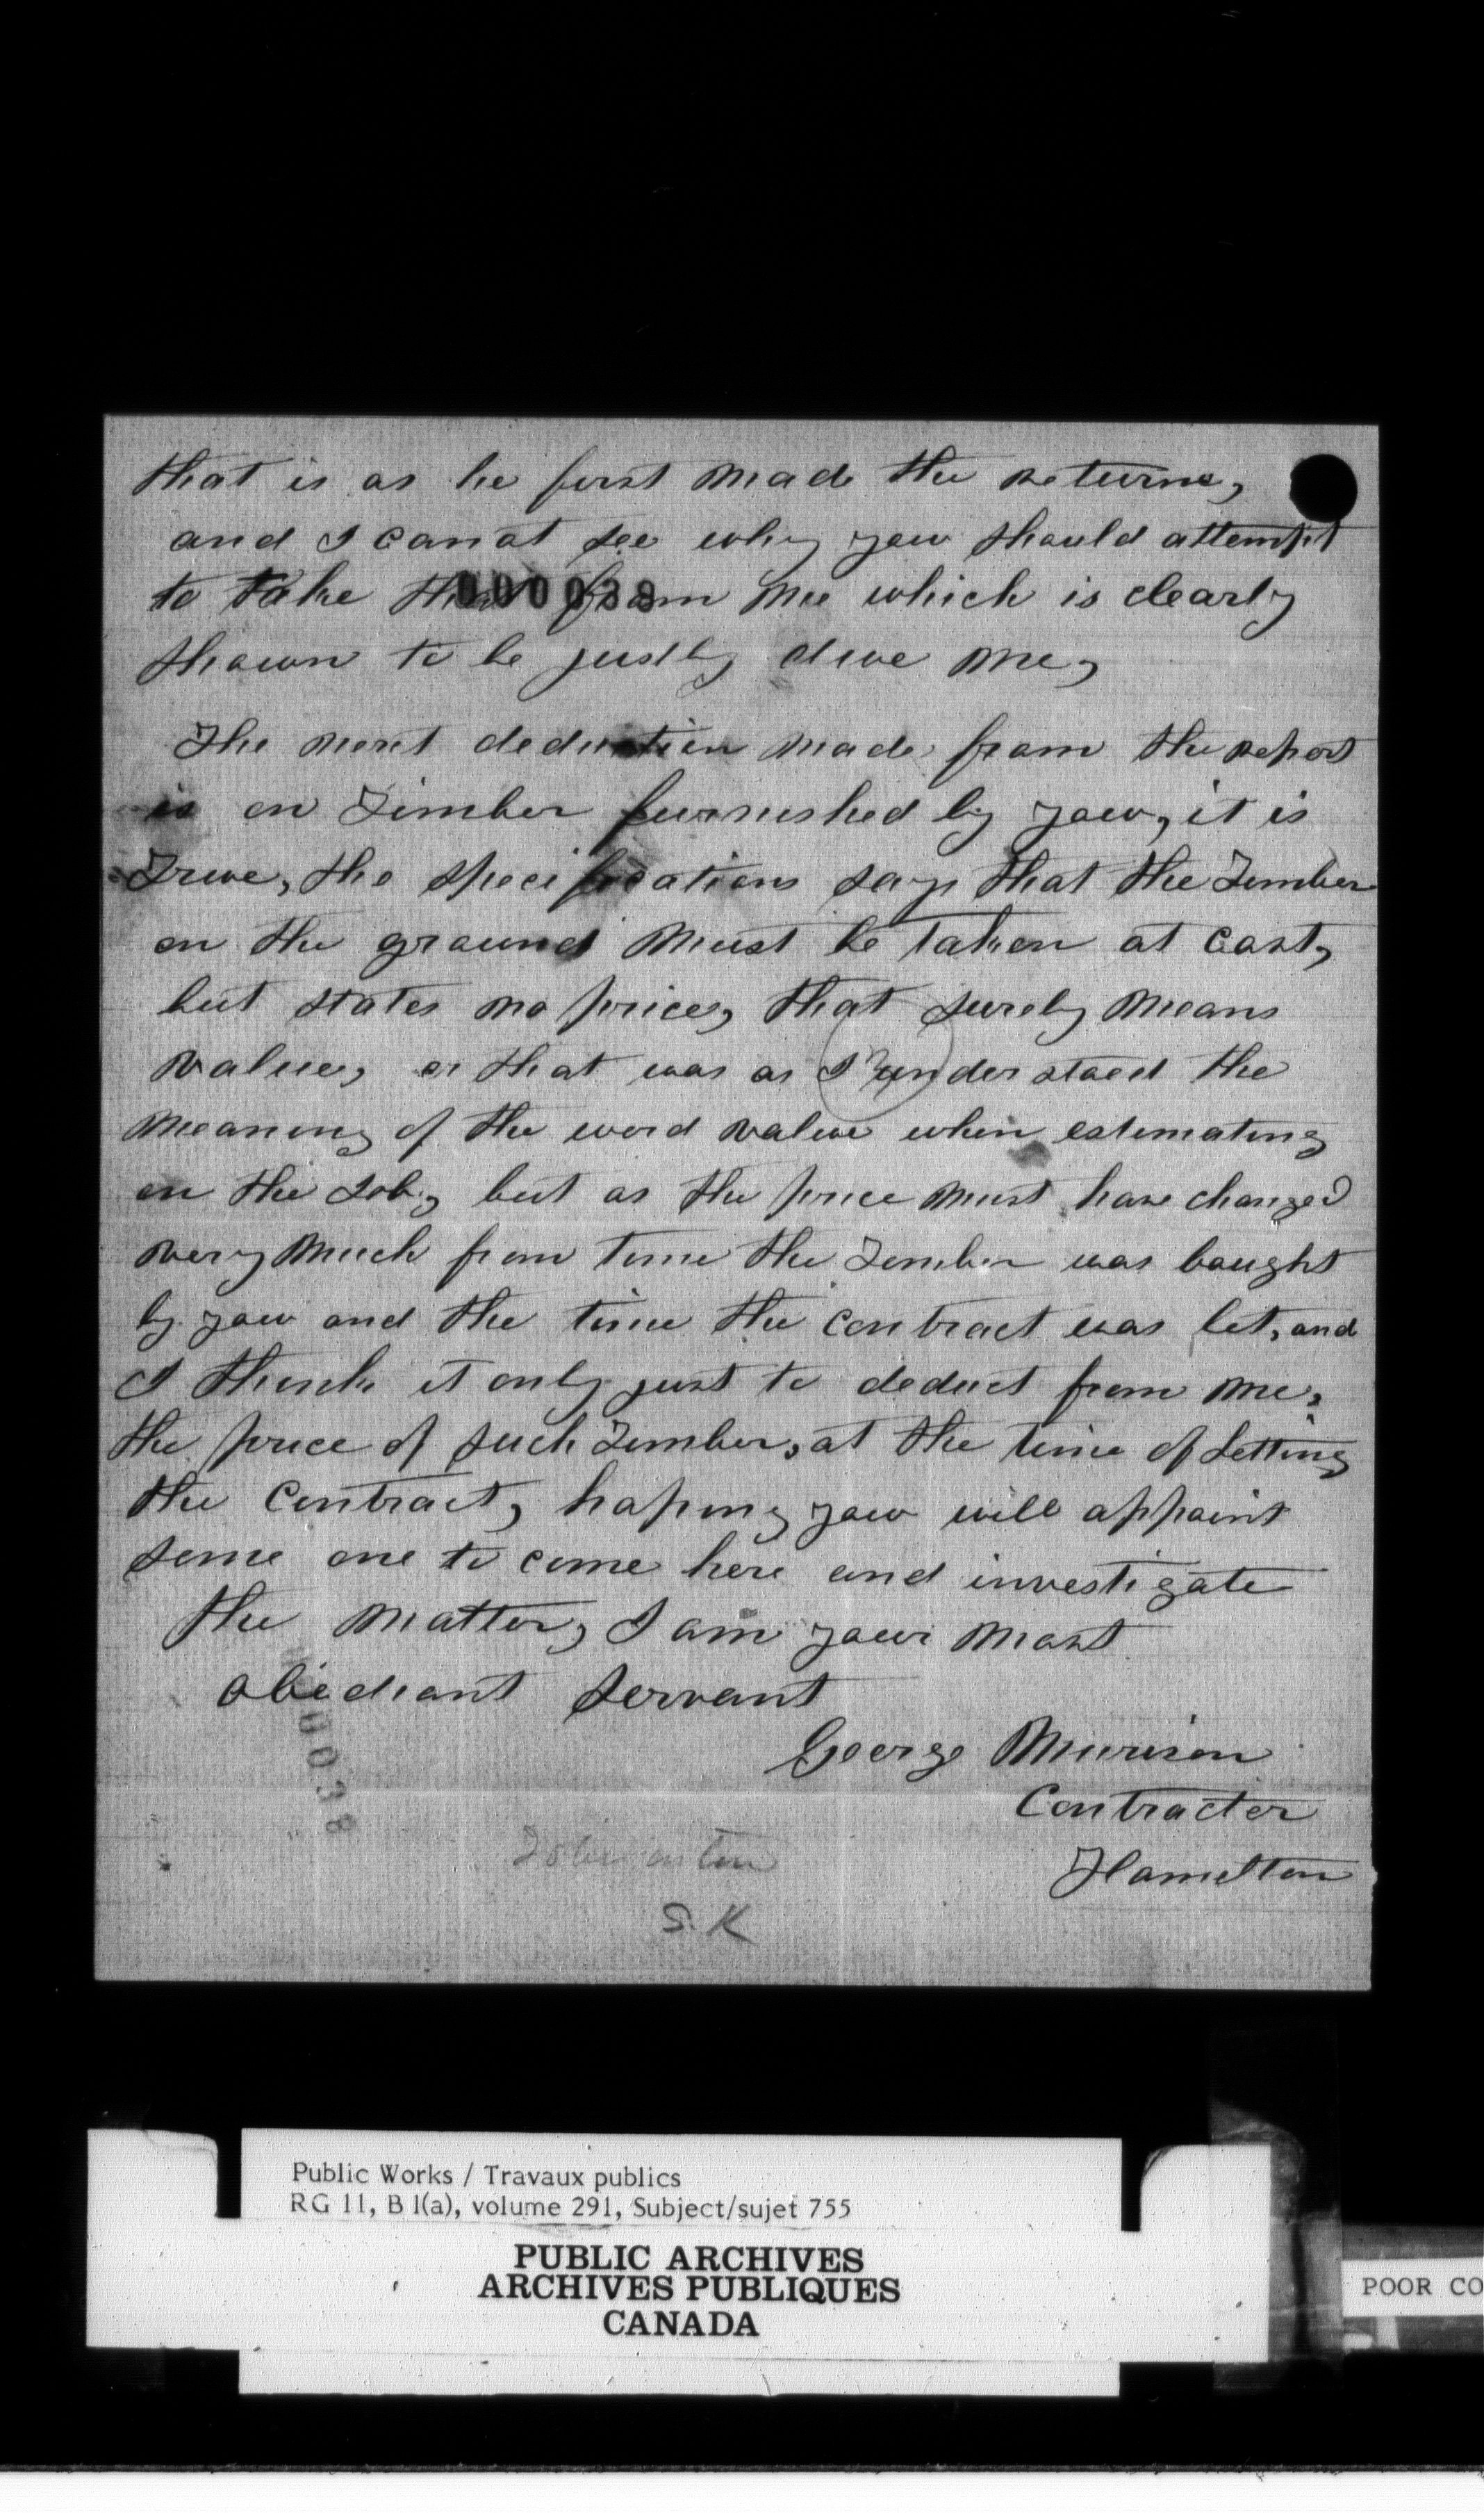 that is as he first made the returns,
and I canot see why you should attempt
to take that from me which is clearly
000038
shown to be justly due me,
The next deduction made from the report
is on Timber furnished by you, it is
True, the specifications says that the Timber
on the ground must be taken at cost,
but states no price, that surely means
value, or that was as I understood the
meaning of the word value when estemating
on the Job, but as the price must have changed
very much from time the Timber was bought
by you and the time the contract was let, and
I think it only just to deduct from me,
the price of such Timber, at the time of Letting
the Contract, hoping you will appoint
some one to come here and investigate
the matter, I am your most
obediant servant
George Murison
Contractor
Hamilton
00038
S. K
Public Works / Travaux publics
RG 11, B 1(a), volume 291, Subject/sujet 755
PUBLIC ARCHIVES
ARCHIVES PUBLIQUES
CANADA
POOR CO